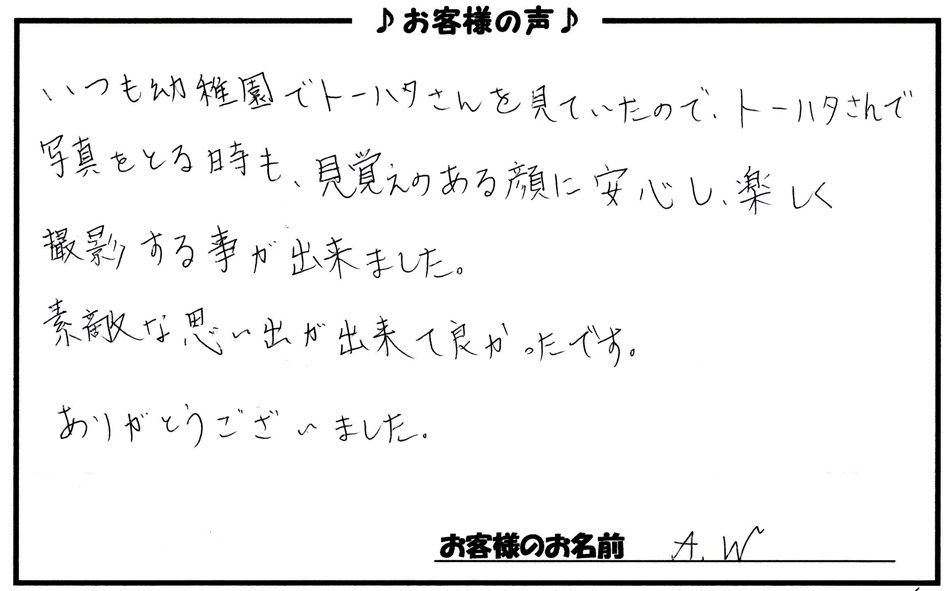 ♪お客様の声♪
いつも幼稚園でトーハタさんを見ていたので、トーハタさんで
写真をとる時も、見覚えのある顔に安心し、楽しく
撮影する事が出来ました。
素敵な思い出が出来て良かったです。
ありがとうございました。
お客様のお名前 A.W